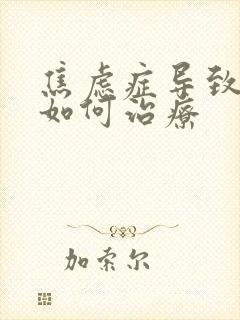 焦虑症导致
如何治疗
加索尔